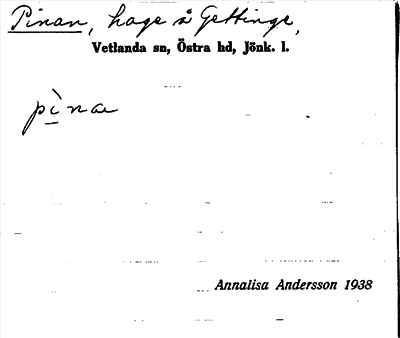 Pinan, hage å Gettinge,
Vetlanda sn, Östra hd, Jönk. l.
pìna
Annalisa Andersson 1938